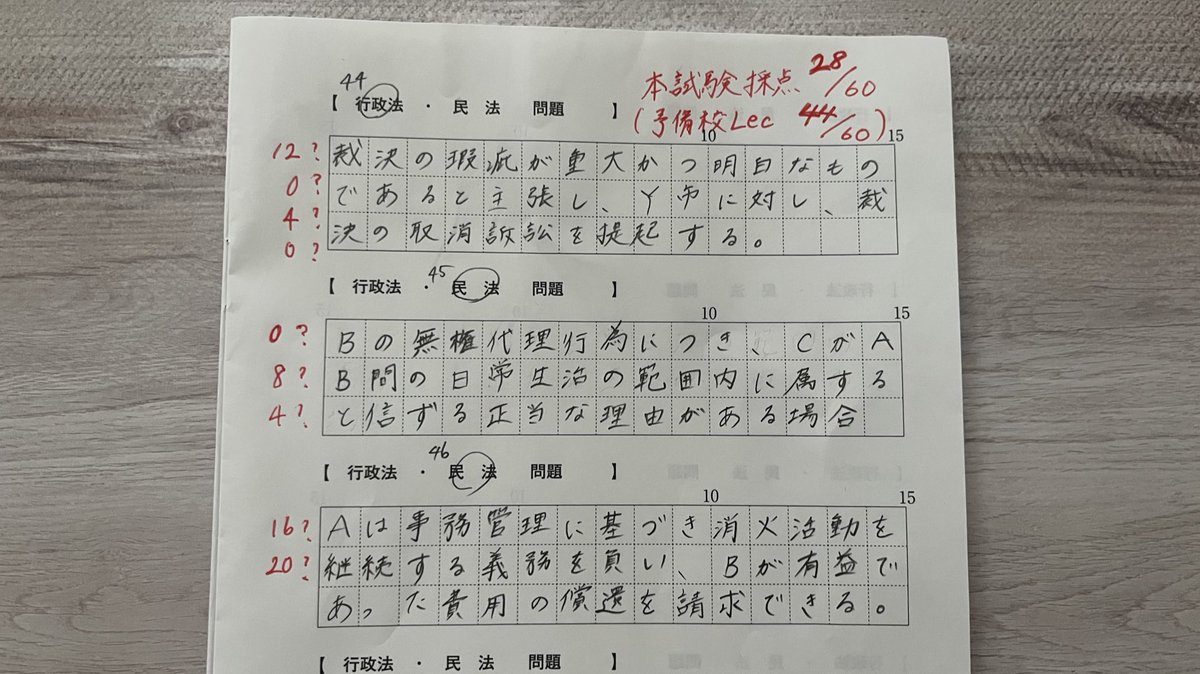 44
【 行政法 ・ 民 法 問題 】
本試験採点 28/60
(予備校Lec 44/60)
10 15
12? 裁決の瑕疵が重大かつ明白なもの
0? であると主張し、Y市に対し、裁
4? 決の取消訴訟を提起する。
0?
45
【 行政法 ・ 民 法 問題 】
10 15
0? Bの無権代理行為につき、CがA
8? B間の日常生活の範囲内に属する
4? と信ずる正当な理由がある場合
46
【 行政法 ・ 民 法 問題 】
10 15
16? Aは事務管理に基づき消火活動を
20? 継続する義務を負い、Bが有益で
あった費用の償還を請求できる。
【 行政法 ・ 民 法 問題 】